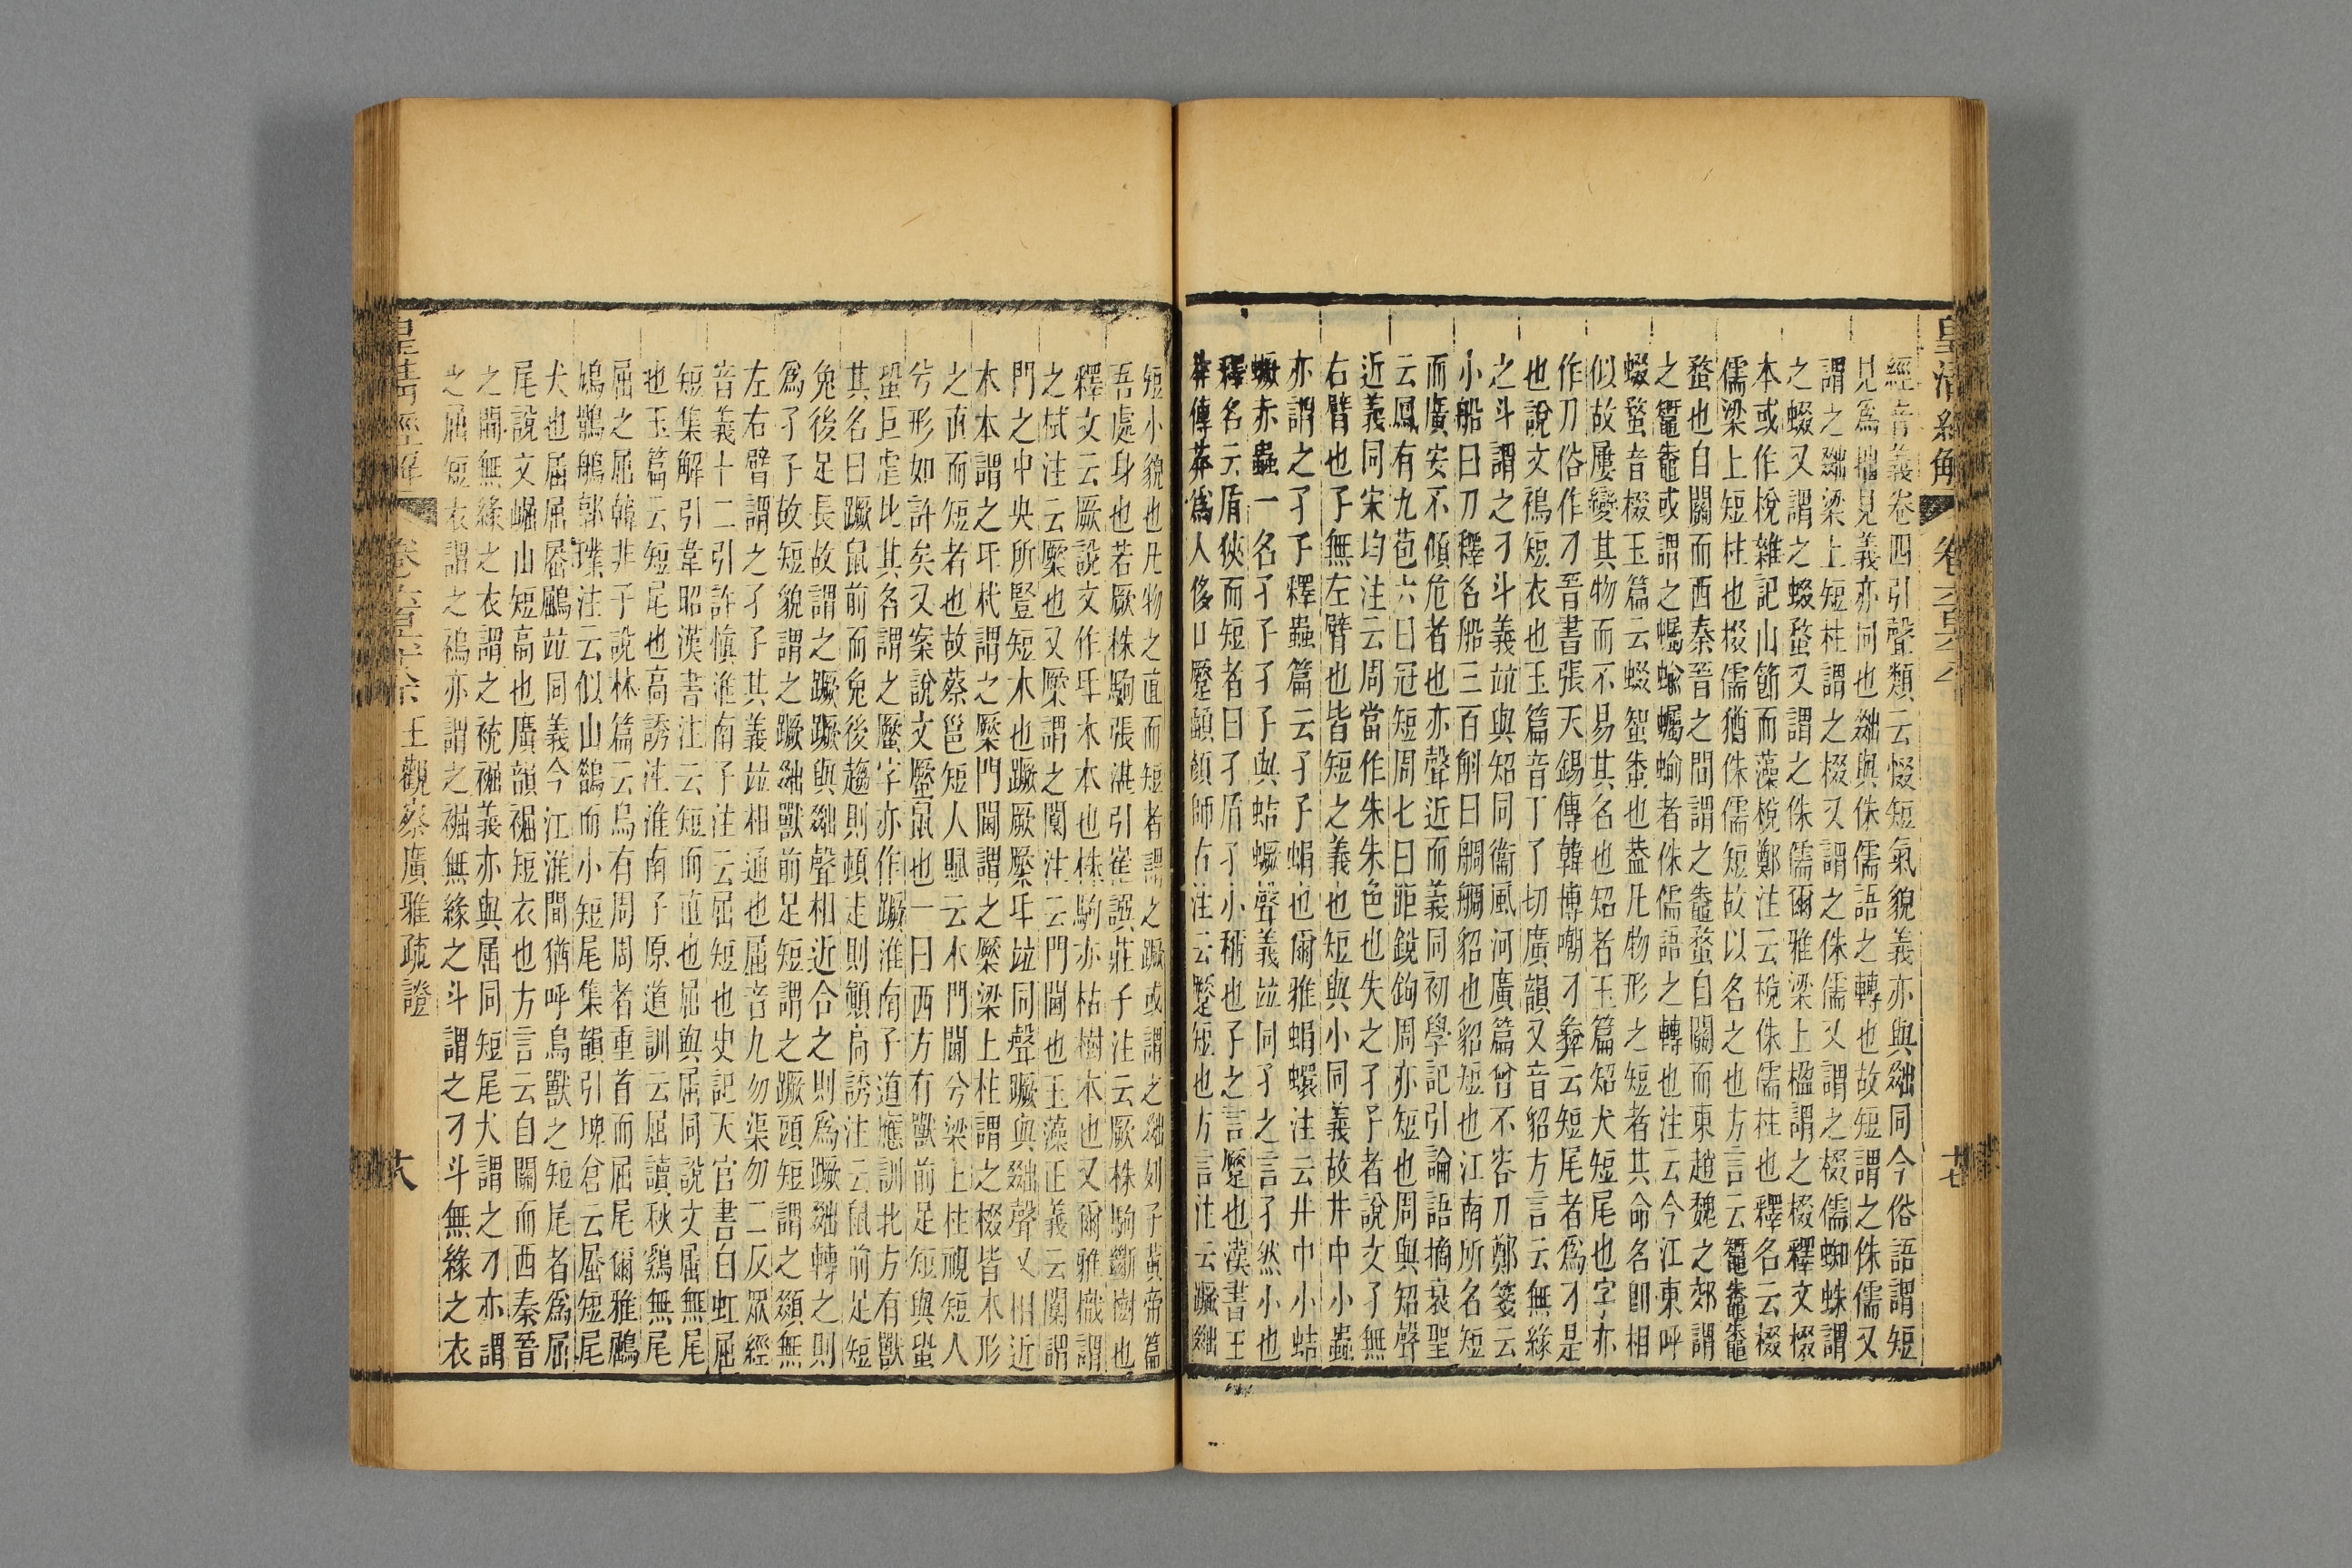 經音義卷四引聲類云惙短氣貌義亦與䠳同今俗語謂短
見爲拙見義亦同也䠳與侏儒語之轉也故短謂之侏儒又
謂之䠳梁上短柱謂之棳又謂之侏儒又謂之棳儒蜘蛛謂
之蝃又謂之蝃蝥又謂之侏儒爾雅梁上楹謂之棳釋文棳
本或作梲雜記山節而藻梲鄭注云梲侏儒柱也釋名云棳
儒梁上短柱也棳儒猶侏儒短故以名之也方言云鼅鼄鼄
蝥也自關而西秦晉之間謂之鼄蝥自關而東趙魏之郊謂
之鼅鼄或謂之蠾蝓蠾蝓者侏儒語之轉也注云今江東呼
蝃蝥音棳玉篇云蝃蟱蛛也蓋凡物形之短者其命名卽相
似故屢變其物而不易其名也㹦者玉篇㹦犬短尾也字亦
作刀俗作刁晉書張天錫傳韓博嘲刁彝云短尾者爲刁是
也說文裯短衣也玉篇音丁了切廣韻又音貂方言云無緣
之斗謂之刁斗義竝與㹦同衞風河廣篇曾不容刀鄭箋云
小船曰刀釋名船三百斛曰䑳䑳貂也貂短也江南所名短
而廣安不傾危者也亦聲近而義同初學記引論語摘衰聖
云鳳有九苞六曰冠短周七曰距銳鉤周亦短也周與㹦聲
近義同宋均注云周當作朱朱色也失之孑孓者說文孑無
右臂也孓無左臂也皆短之義也短與小同義故井中小蟲
亦謂之孑孓釋蟲篇云孑孓蜎也爾雅蜎蠉注云井中小蛣
蟩赤蟲一名孑孓孑孓與蛣蟩聲義竝同孑之言孑然小也
釋名云盾狹而短者曰孑盾孑小稱也孓之言蹷也漢書王
莽傳莽爲人侈口蹷顄顏師古注云蹷短也方言注云蹶䠳
短小貌也凡物之直而短者謂之蹶或謂之䠳列子黃帝篇
吾處身也若厥株駒張湛引崔譔莊子注云厥株駒斷樹也
釋文云厥說文作氒木本也株駒亦枯樹本也又爾雅樴謂
之杙注云橜也又橜謂之闑注云門閫也玉藻正義云闑謂
門之中央所豎短木也蹶厥橜氒竝同聲蹶與䠳聲又相近
木本謂之氒杙謂之橜門閫謂之橜梁上柱謂之棳皆木形
之直而短者也故蔡邕短人賦云木門閫兮梁上柱視短人
兮形如許矣又案說文蟨鼠也一曰西方有獸前足短與蛩
蛩巨虛比其名謂之蟨字亦作蹶淮南子道應訓北方有獸
其名曰蹶鼠前而兔後趨則頓走則顚高誘注云鼠前足短
兔後足長故謂之蹶蹶與䠳聲相近合之則爲蹶䠳轉之則
爲孑孓故短貌謂之蹶䠳獸前足短謂之蹶頭短謂之䫎無
左右臂謂之孑孓其義竝相通也屈音九勿渠勿二反眾經
音義十二引許愼淮南子注云屈短也史記天官書白虹屈
短集解引韋昭漢書注云短而直也屈與屈同說文屈無尾
也玉篇云短尾也高誘注淮南子原道訓云屈讀秋鷄無尾
屈之屈韓非子說林篇云鳥有周周者重首而屈尾爾雅鶌
鳩鶻鵃郭璞注云似山鵲而小短尾集韻引埤倉云䘿短尾
犬也屈屈䘿鶌竝同義今江淮間猶呼鳥獸之短尾者爲屈
尾說文崛山短高也廣韻裾短衣也方言云自關而西秦晉
之閒無緣之衣謂之䘪裾義亦與屈同短尾犬謂之刁亦謂
之屈短衣謂之裯亦謂之裾無緣之斗謂之刁斗無緣之衣
皇淸經解 卷六百六十八 王觀察廣雅疏證 大